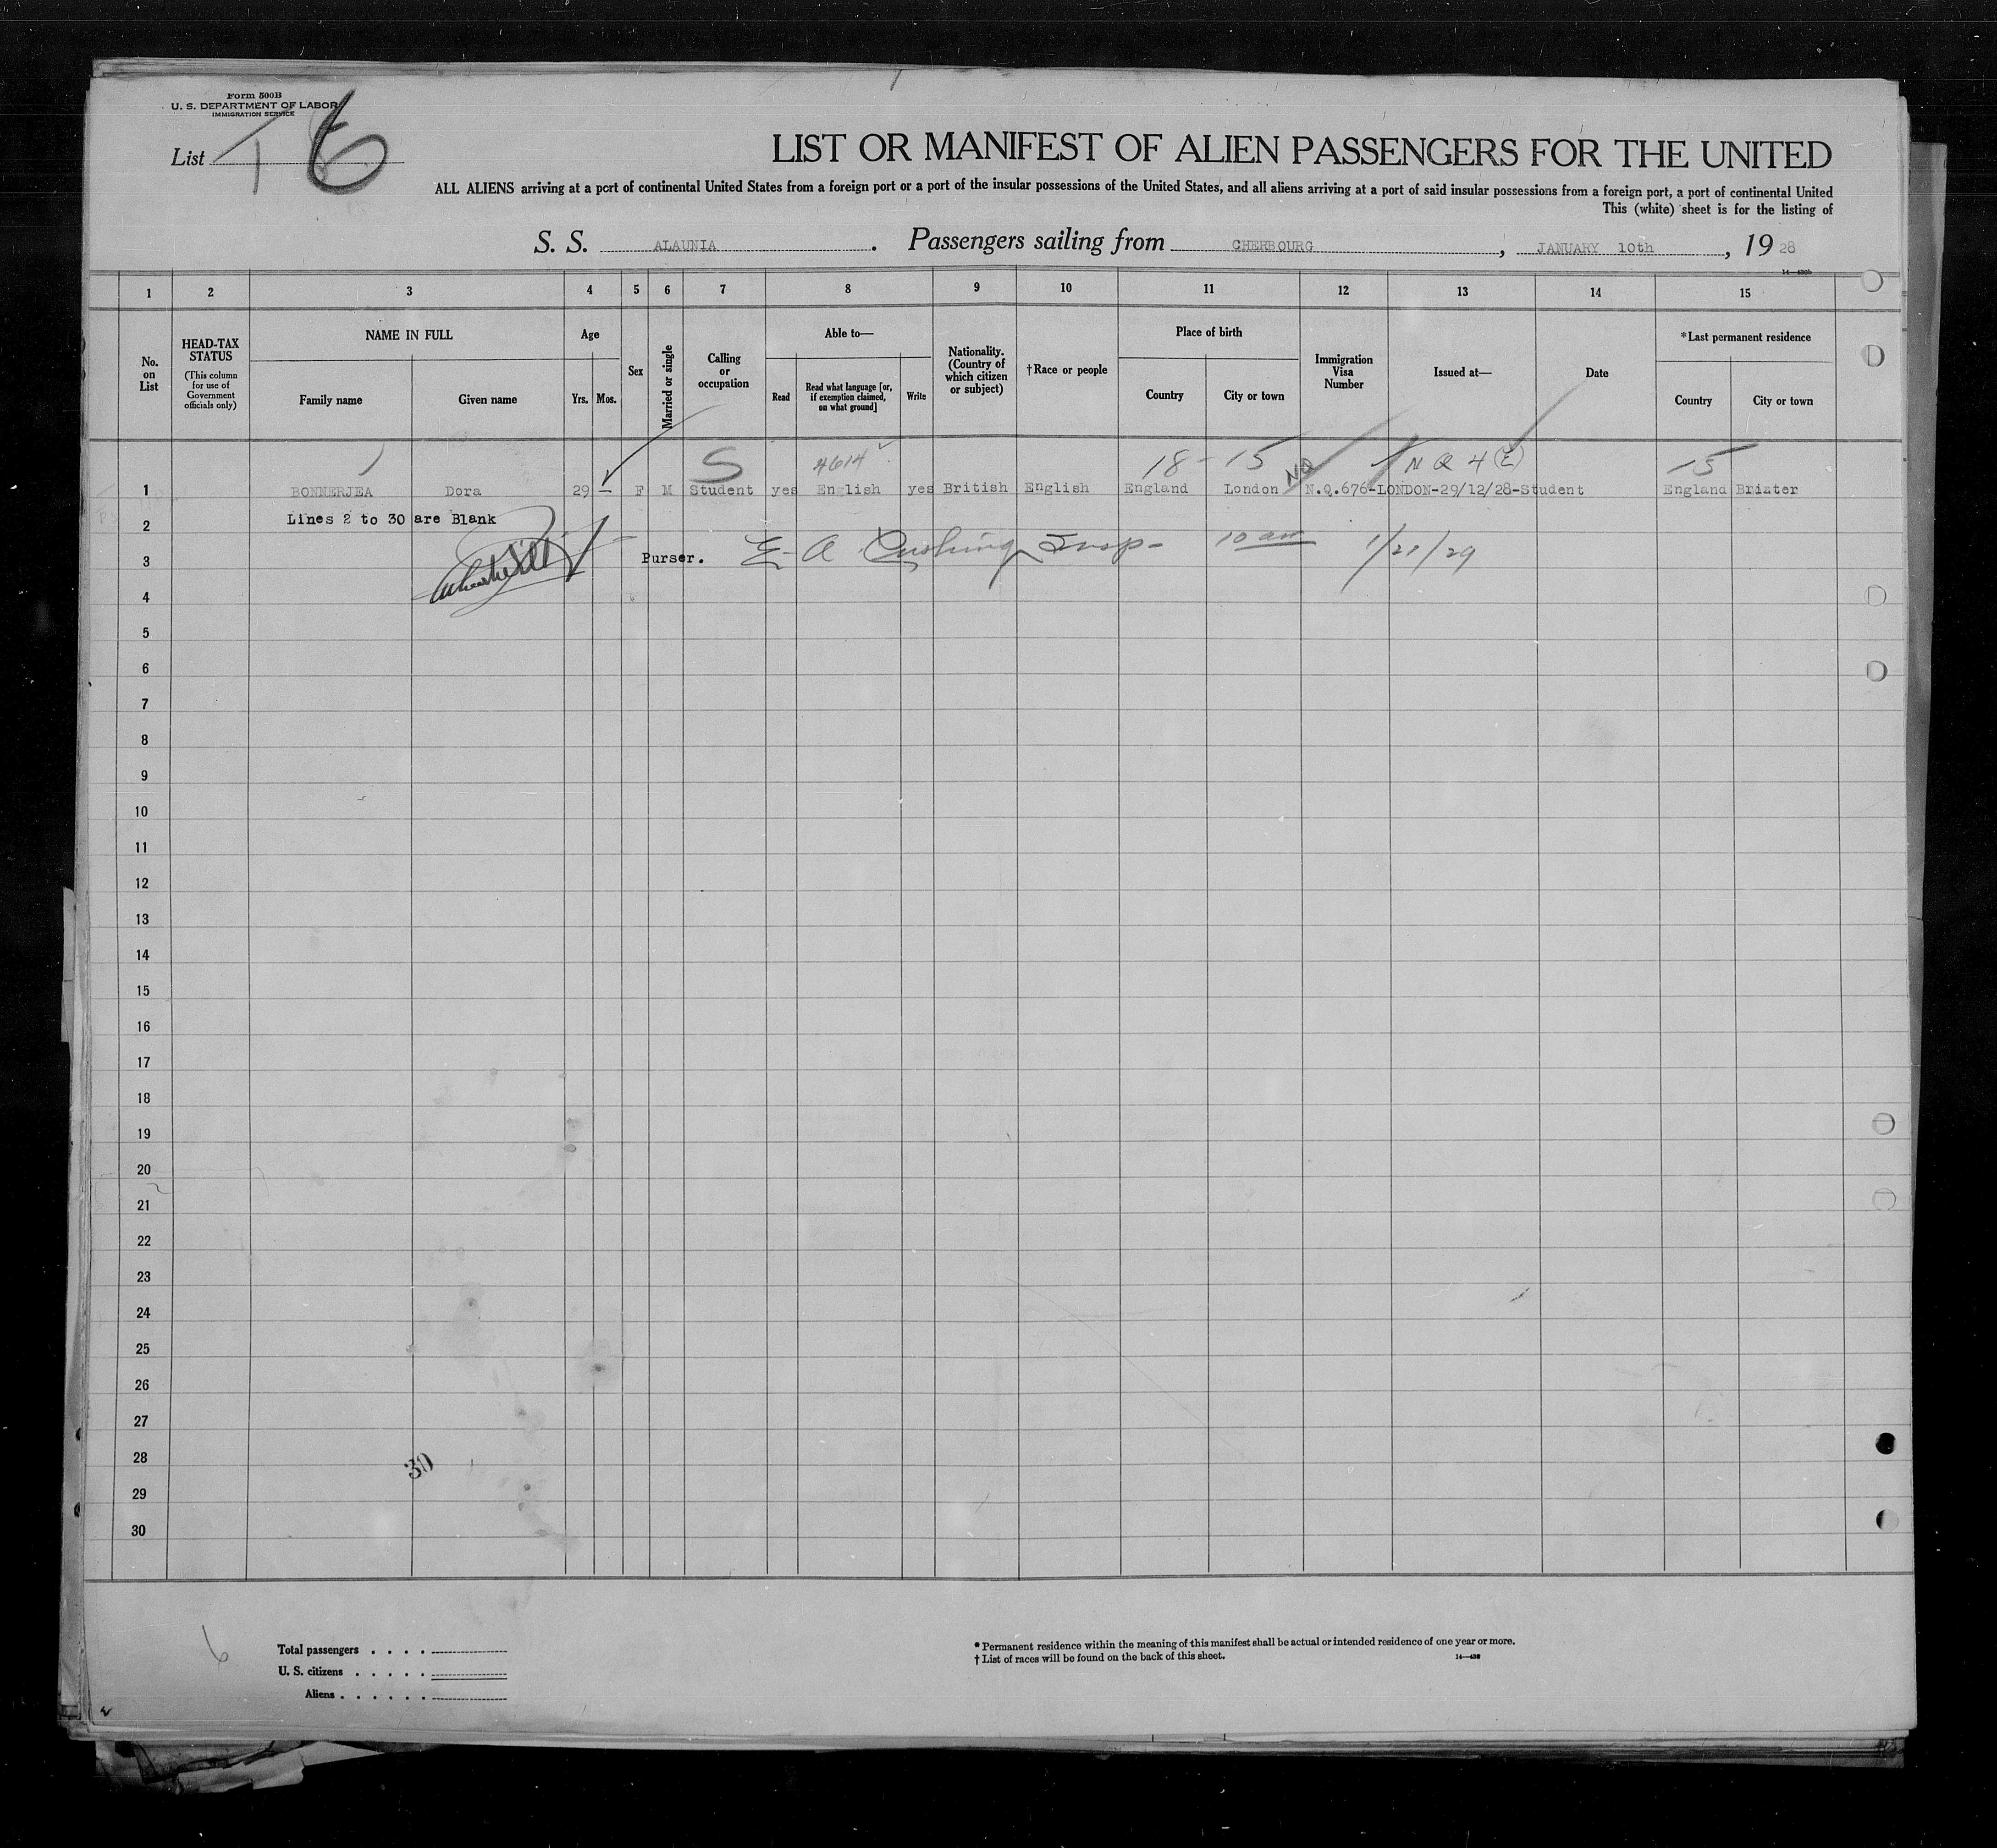 Form 500B
U. S. DEPARTMENT OF LABOR
IMMIGRATION SERVICE
List 6
LIST OR MANIFEST OF ALIEN PASSENGERS FOR THE UNITED
ALL ALIENS arriving at a port of continental United States from a foreign port or a port of the insular possessions of the United States, and all aliens arriving at a port of said insular possessions from a foreign port, a port of continental United
This (white) sheet is for the listing of
S. S. ALAUNIA . Passengers sailing from CHERBOURG , JANUARY 10th , 19 28
1 2 3 4 5 6 7 8 9 10 11 12 13 14 15
No. on List
HEAD-TAX STATUS (This column for use of Government officials only)
NAME IN FULL
Family name Given name
Age
Yrs. Mos.
Sex
Married or single
Calling or occupation
Able to—
Read
Read what language [or, if exemption claimed, on what ground]
Write
Nationality. (Country of which citizen or subject)
†Race or people
Place of birth
Country City or town
Immigration Visa Number
Issued at—
Date
*Last permanent residence
Country City or town
S 4614 18 - 15 NQ NQ 4 (E) 15
1 BONNERJEA Dora 29 — F M Student yes English yes British English England London N.Q.676-LONDON-29/12/28-Student England Brixter
Lines 2 to 30 are Blank
2
3 Purser. E A Cushing Insp- 10 am 1/21/29
4
5
6
7
8
9
10
11
12
13
14
15
16
17
18
19
20
21
22
23
24
25
26
27
28 30
29
30
6
Total passengers . . . .
U. S. citizens . . . . .
Aliens . . . . . .
* Permanent residence within the meaning of this manifest shall be actual or intended residence of one year or more.
† List of races will be found on the back of this sheet.